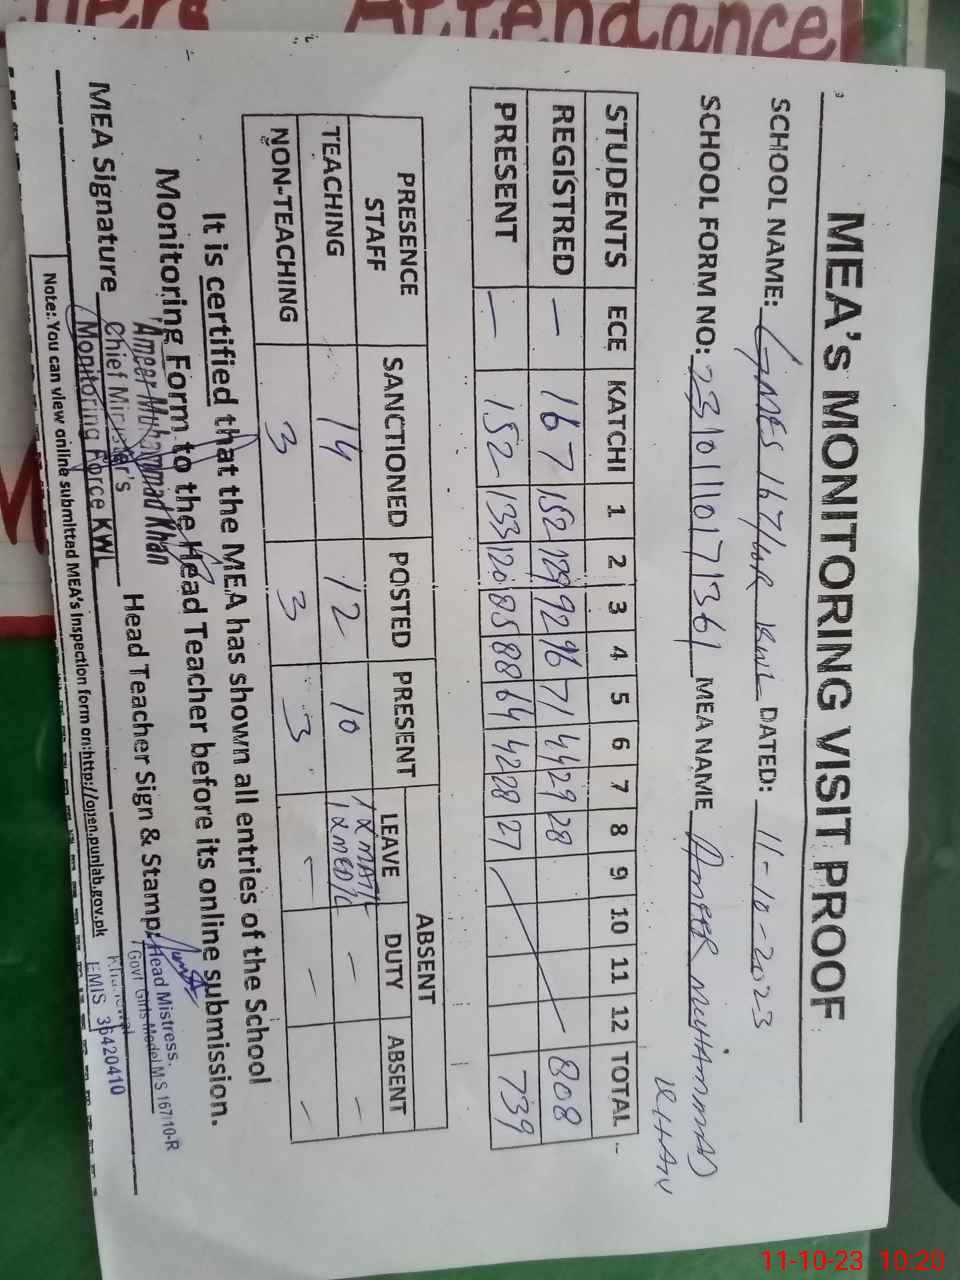 Attendance
MEA's MONITORING VISIT PROOF
SCHOOL NAME: GMES 167/10R KWL DATED: 11-10-2023
SCHOOL FORM NO: MEA NAME AMEER MUHAMMAD
KHAN
STUDENTS ECE KATCHI 1 2 3 4 5 6 7 8 9 10 11 12 TOTAL
REGISTRED — 167 152 129 92 96 71 44 29 28 808
PRESENT — 152 133 120 85 88 64 42 28 27 739
PRESENCE STAFF SANCTIONED POSTED PRESENT ABSENT
LEAVE DUTY ABSENT
TEACHING 14 12 10 – –
NON-TEACHING 3 3 3 – – –
It is certified that the MEA has shown all entries of the School
Monitoring Form to the Head Teacher before its online submission.
MEA Signature Head Teacher Sign & Stamp:
Ameer Muhammad Khan
Chief Minister's
Monitoring Force KWL
Head Mistress.
Govt Girls Model M.S 167/10-R
Khanewal
EMIS 36420410
Note: You can view online submitted MEA's inspection form on:http://open.punjab.gov.pk
11-10-23 10:20